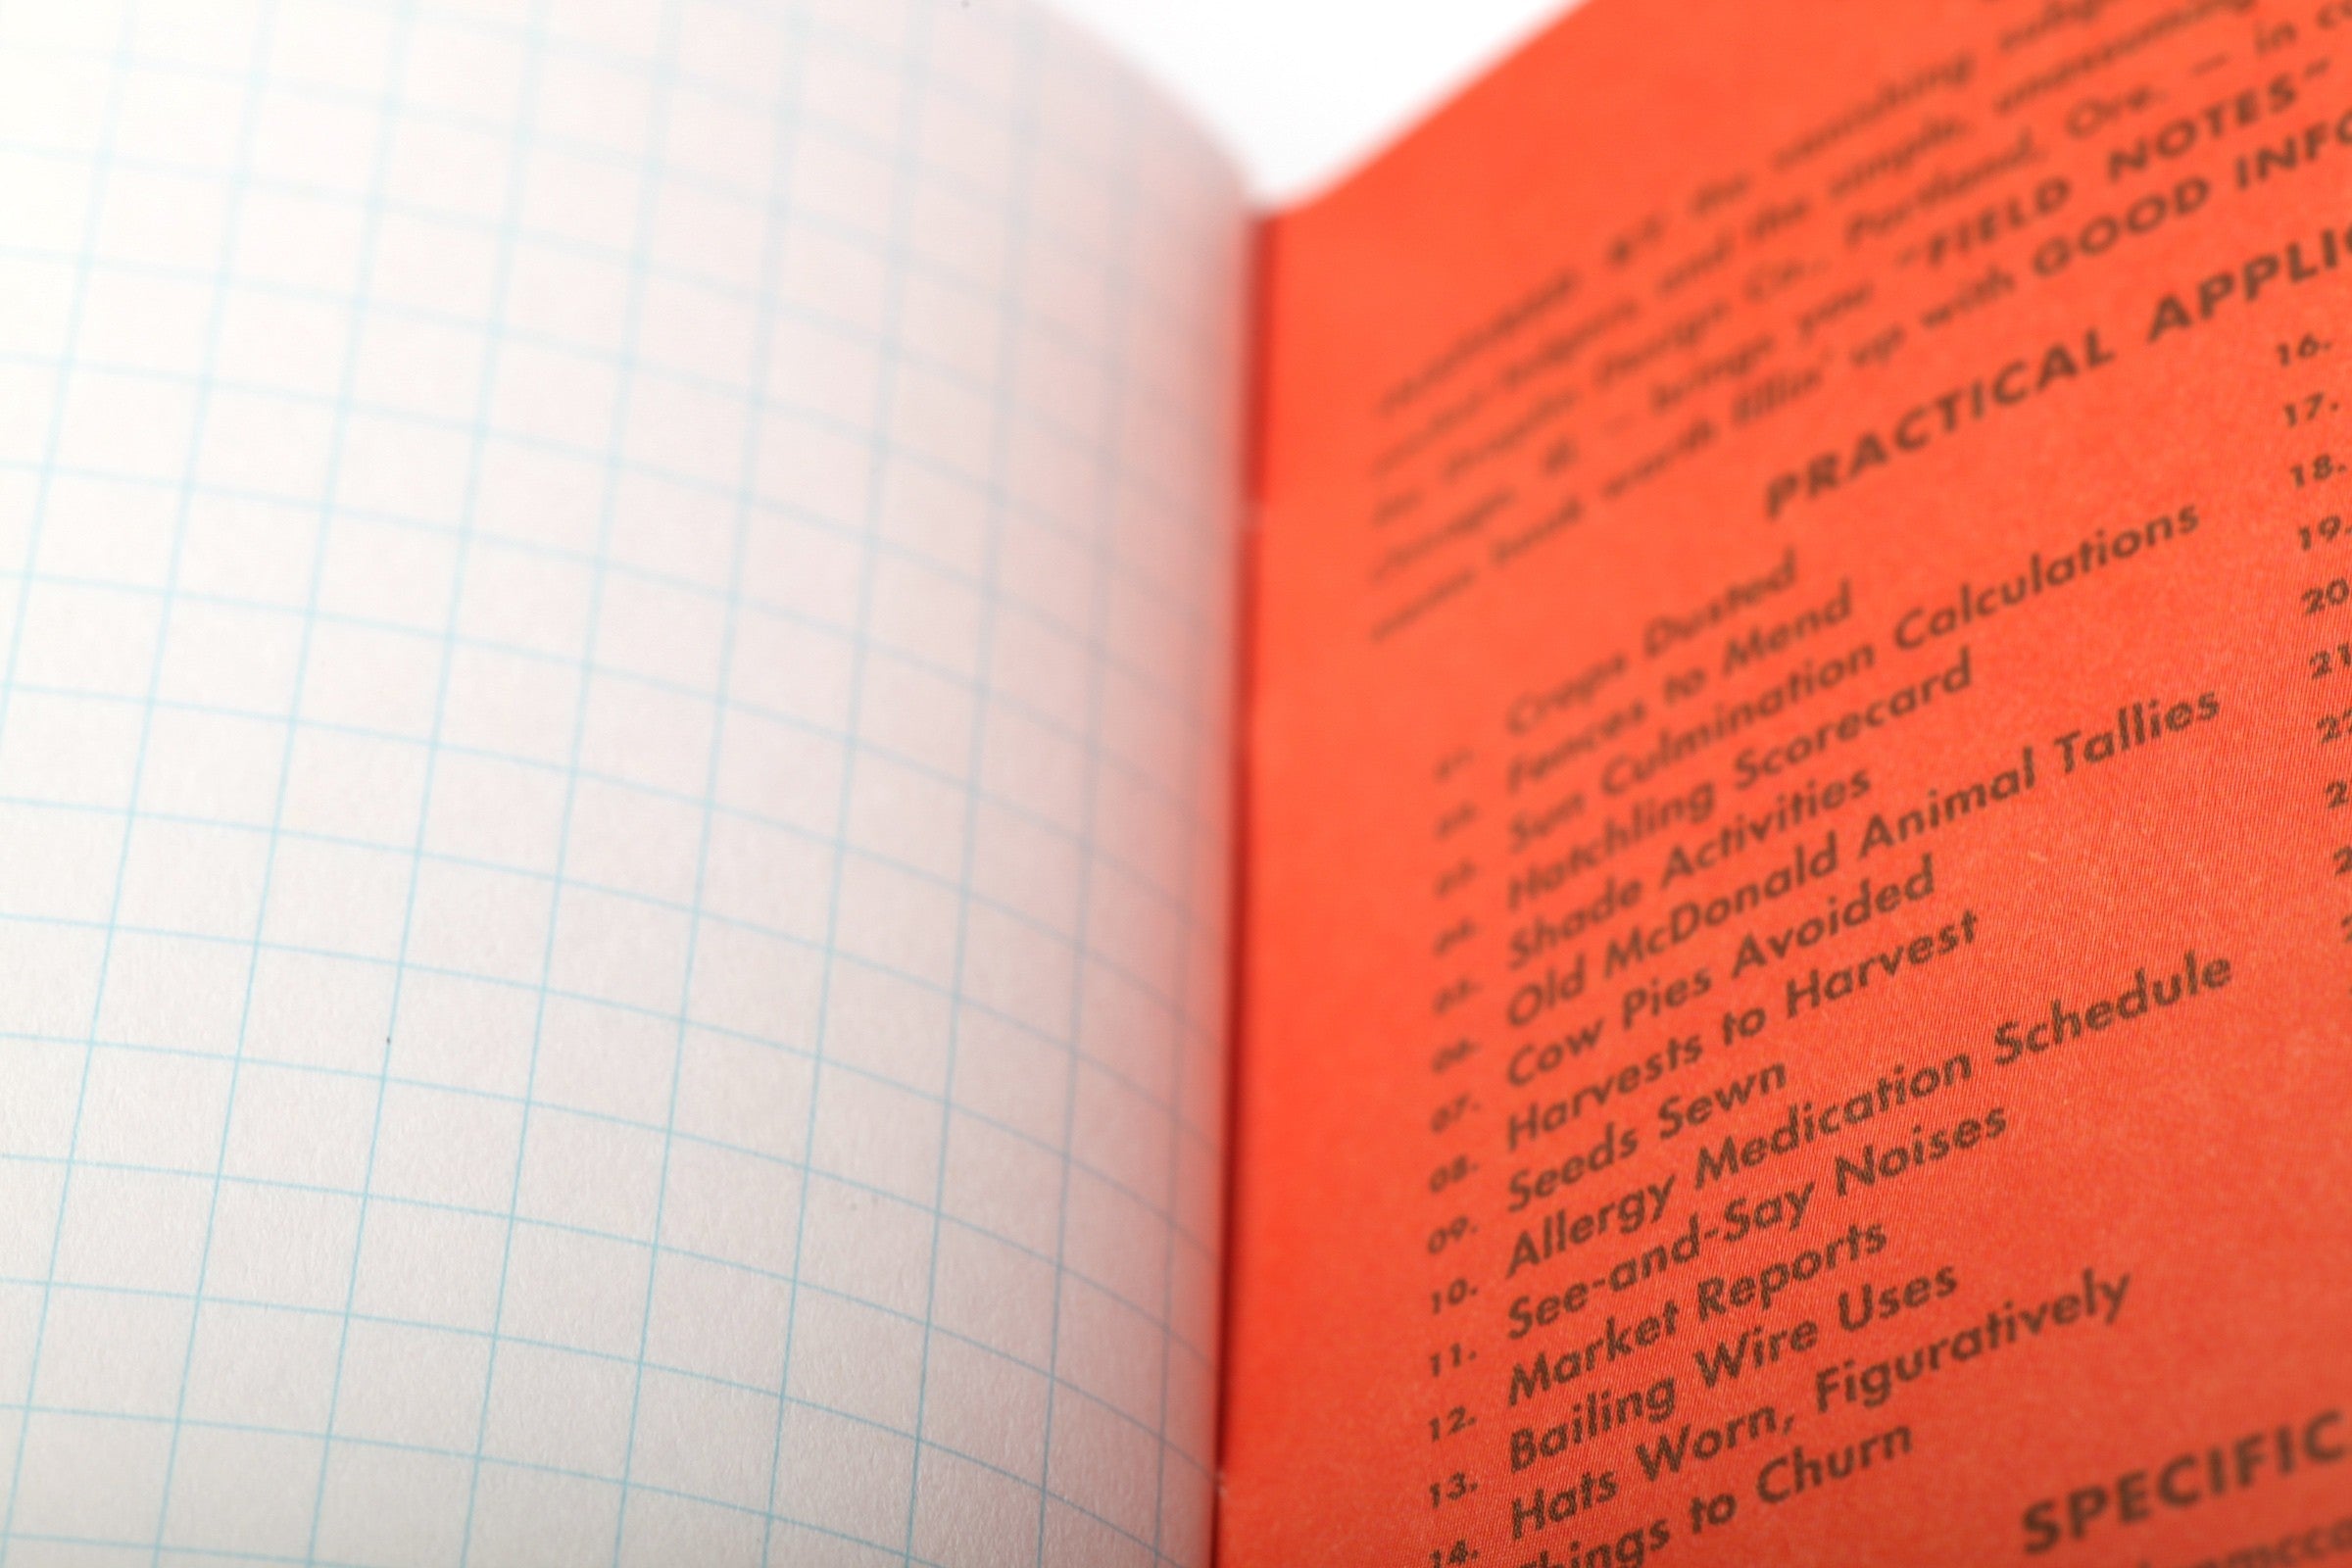 the vanishing
and the simple, unassuming
Design Co., Portland, Ore. — in co
— brings you "FIELD NOTES"
book worth fillin' up with GOOD INFO
PRACTICAL APPLIC
Crops Dusted
Fences to Mend
Sun Culmination Calculations
04. Hatchling Scorecard
05. Shade Activities
06. Old McDonald Animal Tallies
07. Cow Pies Avoided
08. Harvests to Harvest
09. Seeds Sewn
10. Allergy Medication Schedule
11. See-and-Say Noises
12. Market Reports
13. Bailing Wire Uses
14. Hats Worn, Figuratively
Things to Churn
16.
17.
18.
19.
20
21
SPECIFIC